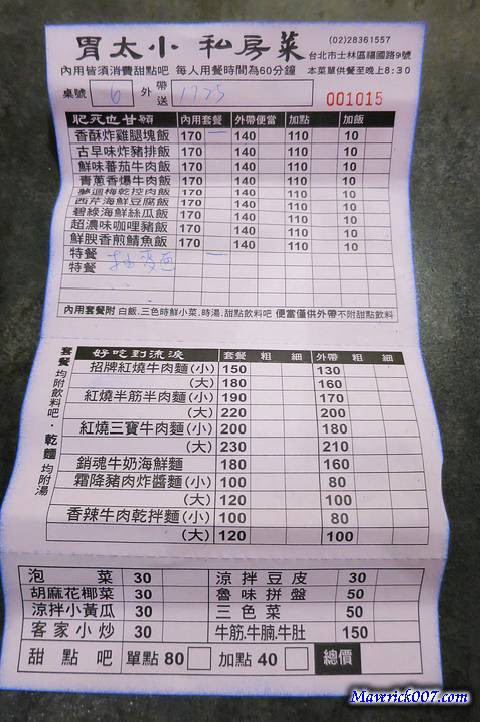 胃太小 私房菜
(02)28361557
台北市士林區福國路9號
內用皆須消費甜點吧 每人用餐時間為60分鐘 本菜單供餐至晚上8:30
桌號 6 外帶 外送 1725 001015
肥死也甘願 內用套餐 外帶便當 加點 加飯
香酥炸雞腿塊飯 170 一 140 110 10
古早味炸豬排飯 170 140 110 10
鮮味蕃茄牛肉飯 170 140 110 10
青蔥香爆牛肉飯 170 140 110 10
夢迴梅乾控肉飯 170 140 110 10
西芹海鮮豆腐飯 170 140 110 10
碧綠海鮮絲瓜飯 170 140 110 10
超濃味咖哩豬飯 170 140 110 10
鮮腴香煎鯖魚飯 170 140 110 10
特餐
特餐 一
內用套餐附 白飯.三色時鮮小菜.時湯.甜點飲料吧 便當僅供外帶不附甜點飲料
套餐均附飲料吧・乾麵均附湯
好吃到流淚 套餐 粗 細 外帶 粗 細
招牌紅燒牛肉麵(小) 150 130
(大) 180 160
紅燒半筋半肉麵(小) 190 170
(大) 220 200
紅燒三寶牛肉麵(小) 200 180
(大) 230 210
銷魂牛奶海鮮麵 180 160
霜降豬肉炸醬麵(小) 100 80
(大) 120 100
香辣牛肉乾拌麵(小) 100 80
(大) 120 100
泡菜 30 涼拌豆皮 30
胡麻花椰菜 30 魯味拼盤 50
涼拌小黃瓜 30 三色菜 50
客家小炒 30 牛筋.牛腩.牛肚 150
甜點吧 單點80 加點40 總價
Maverick007.com